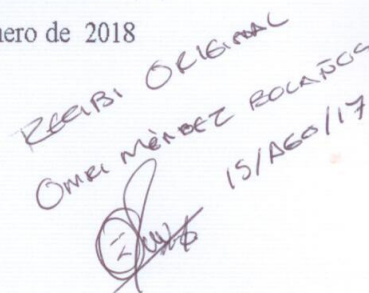 nero de 2018
RECIBI ORIGINAL
OMRI MÉNDEZ BOLAÑOS
15/AGO/17